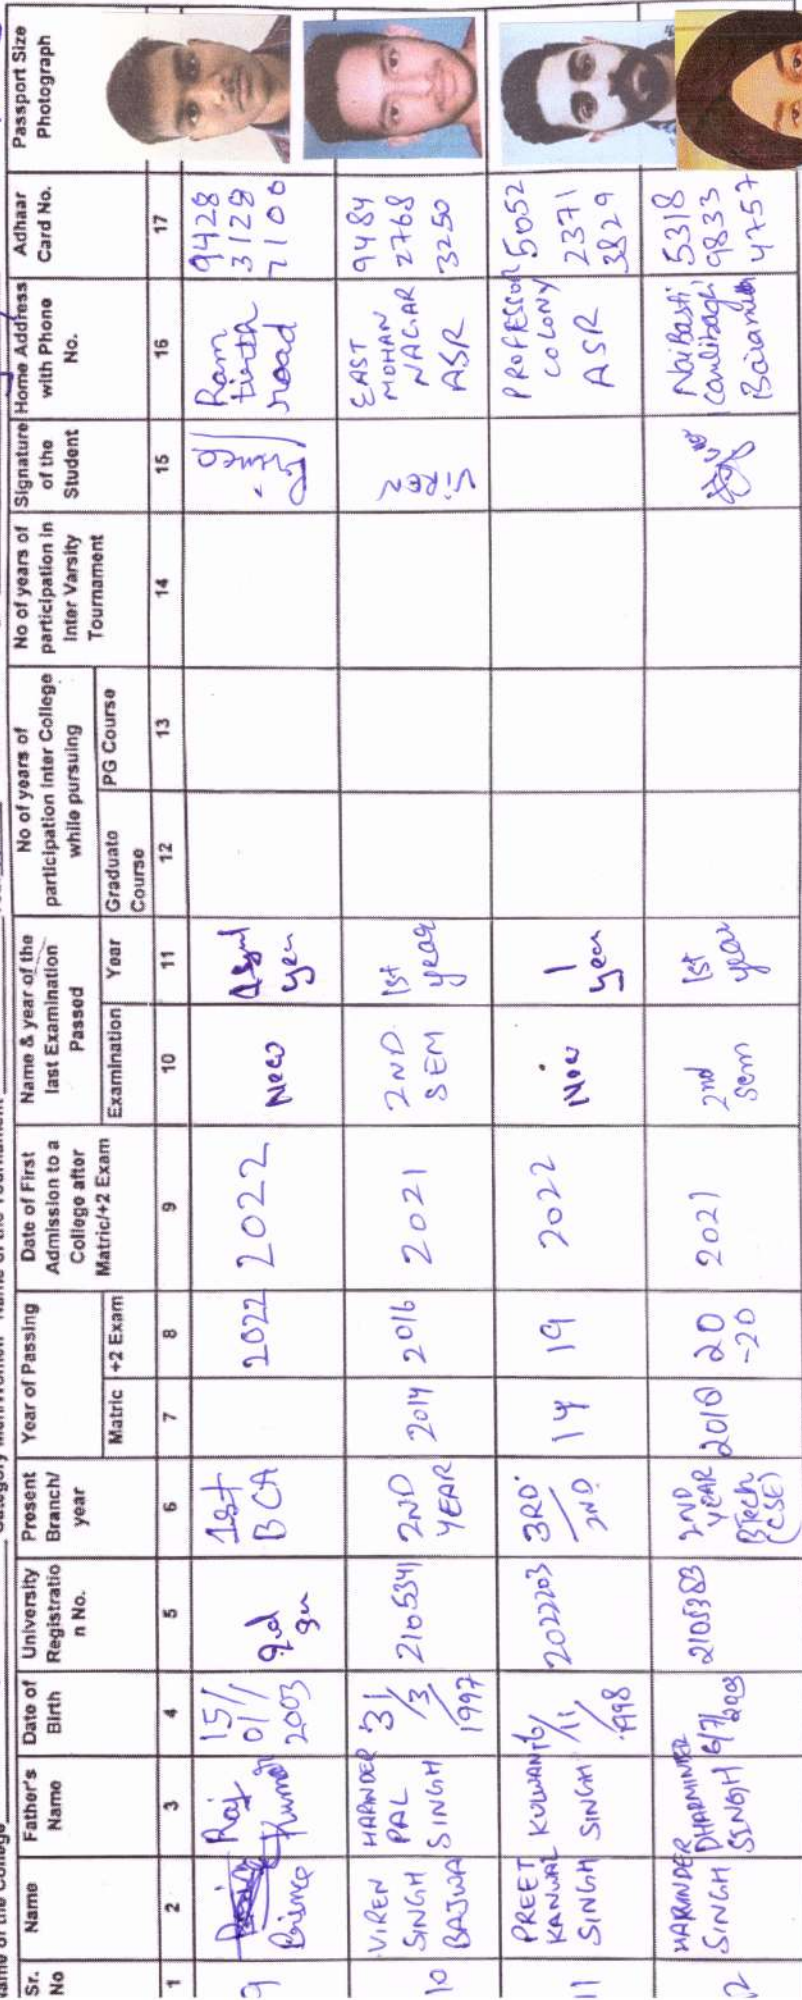 Sr. No
Name
Father's Name
Date of Birth
University Registratio n No.
Present Branch/ year
Year of Passing
Matric
+2 Exam
Date of First Admission to a College after Matric/+2 Exam
Name & year of the last Examination Passed
Examination
Year
No of years of participation Inter College while pursuing
Graduate Course
PG Course
No of years of participation in Inter Varsity Tournament
Signature of the Student
Home Address with Phone No.
Adhaar Card No.
Passport Size Photograph
1 2 3 4 5 6 7 8 9 10 11 12 13 14 15 16 17
9
Prince
Raj Kumar
15/ 01/ 2003
1st BCA
2022
2022
New
year
Ram tirth road
9428 3128 7100
10
VIREN SINGH BAJWA
HARINDER PAL SINGH
31/3/1997
2105341
2ND YEAR
2014
2016
2021
2ND SEM
1st year
Viren
EAST MOHAN NAGAR ASR
9484 2768 3250
11
PREET KANWAL SINGH
KULWANT SINGH
16/11/1998
2022203
3RD/2ND
14
19
2022
1 year
PROFESSOR COLONY ASR
5052 2371 3829
12
HARINDER SINGH
DHARMINDER SINGH
6/7/2003
2105383
2ND YEAR BTech (CSE)
20 -20
2021
2nd sem
1st year
5318 9833 4757